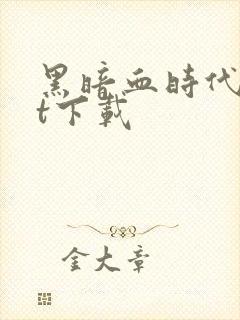 黑暗血時代
t下載
金大章